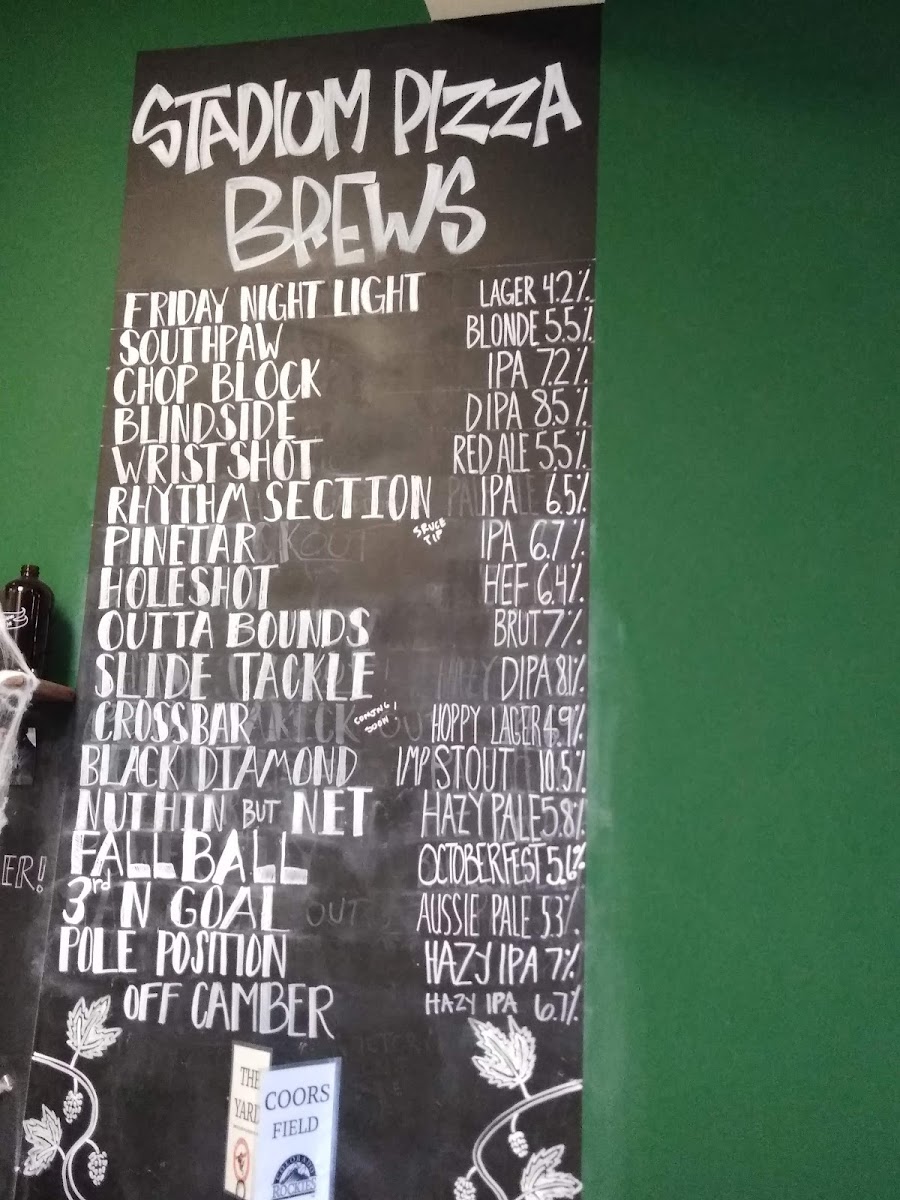 STADIUM PIZZA
BREWS
FRIDAY NIGHT LIGHT LAGER 4.2%
SOUTHPAW BLONDE 5.5%
CHOP BLOCK IPA 7.2%
BLINDSIDE DIPA 8.5%
WRIST SHOT RED ALE 5.5%
RHYTHM SECTION IPA 6.5%
PINETAR SRUCE TIP IPA 6.7%
HOLESHOT HEF 6.4%
OUTTA BOUNDS BRUT 7%
SLIDE TACKLE DIPA 8.1%
CROSSBAR COMING SOON! HOPPY LAGER 4.9%
BLACK DIAMOND IMP STOUT 10.5%
NUTHIN BUT NET HAZY PALE 5.8%
FALL BALL OCTOBERFEST 5.6%
3rd N GOAL AUSSIE PALE 5.3%
POLE POSITION HAZY IPA 7%
OFF CAMBER HAZY IPA 6.7%
ER!
THE
YARD
COORS
FIELD
COLORADO
ROCKIES